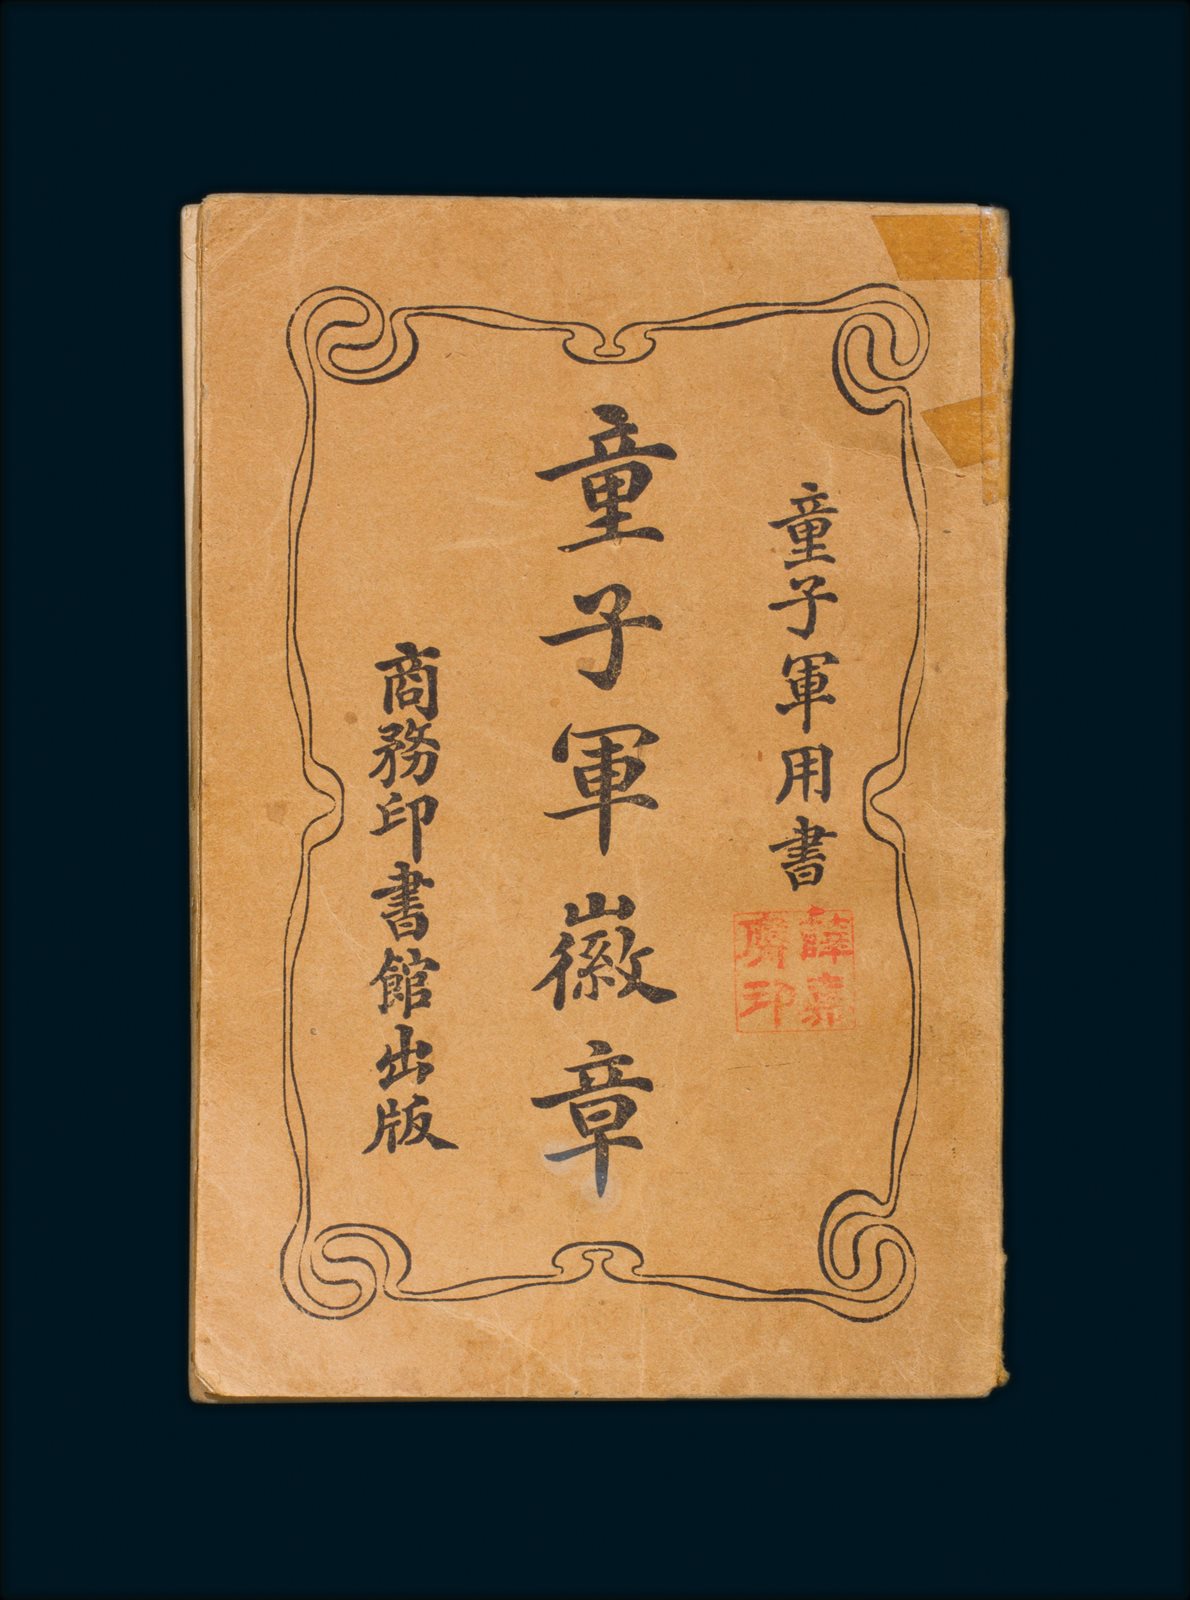 童子軍用書
童子軍徽章
商務印書館出版
薛嘉
印